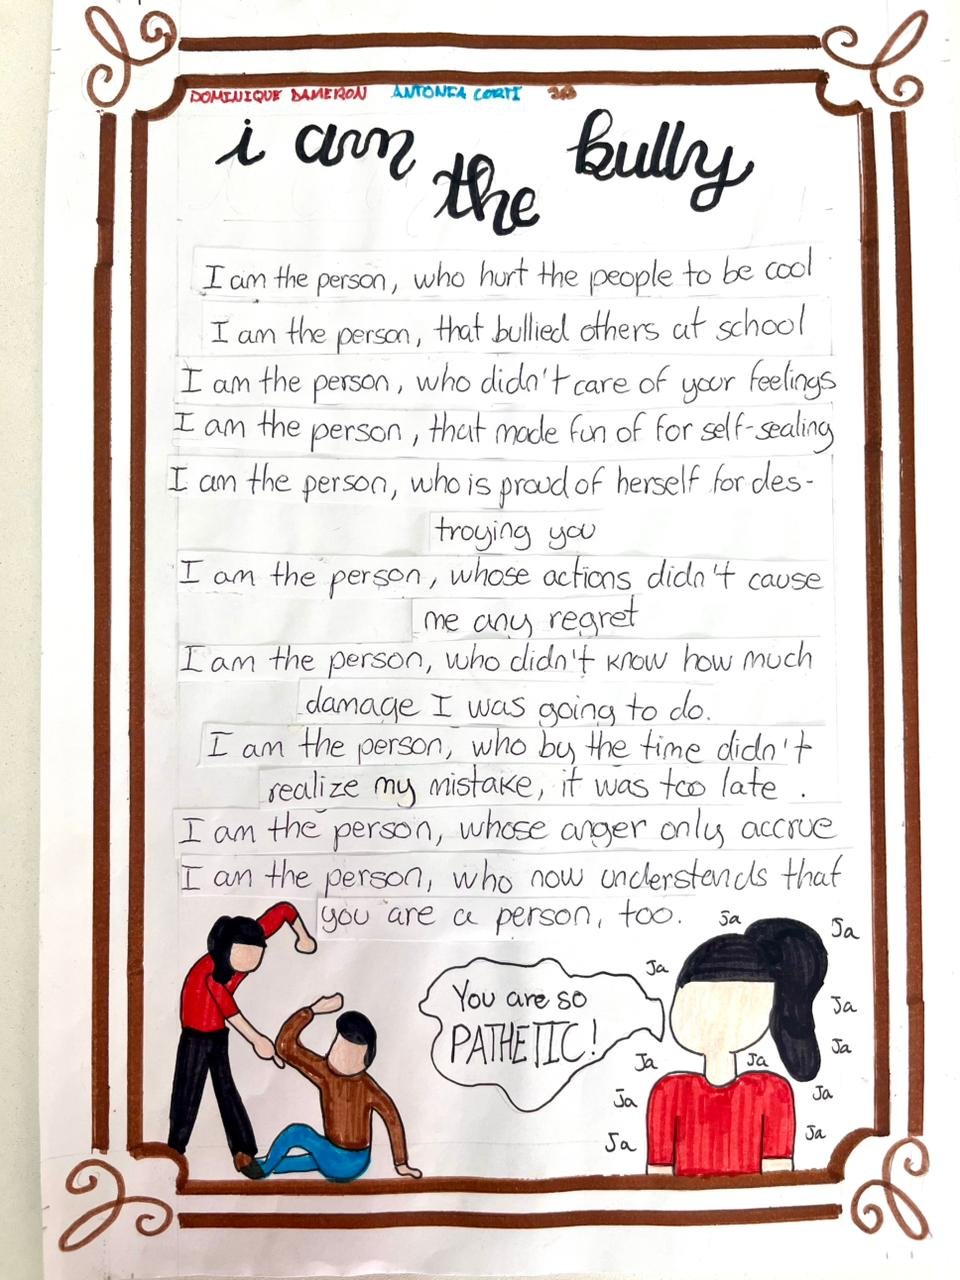 DOMINIQUE DAMERON ANTONEA CORTI
i am the bully
I am the person, who hurt the people to be cool
I am the person, that bullied others at school
I am the person, who didn't care of your feelings
I am the person, that made fun of for self-sealing
I am the person, who is proud of herself for des-
troying you
I am the person, whose actions didn't cause
me any regret
I am the person, who didn't know how much
damage I was going to do.
I am the person, who by the time didn't
realize my mistake, it was too late.
I am the person, whose anger only accrue
I am the person, who now understands that
you are a person, too.
You are so
PATHETIC!
Ja
Ja
Ja
Ja
Ja
Ja
Ja
Ja
Ja
Ja
Ja